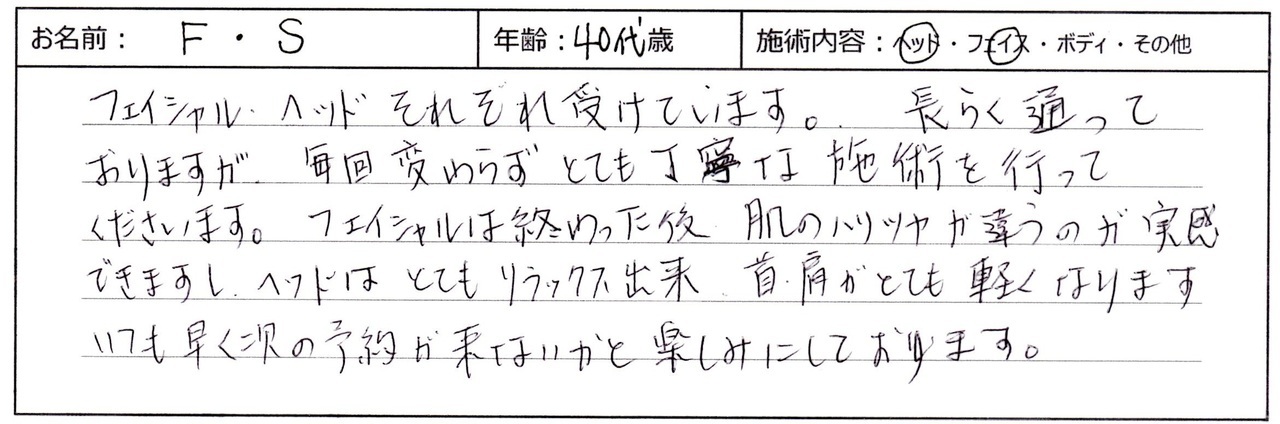 お名前： F・S 年齢：40代歳 施術内容：ヘッド・フェイス・ボディ・その他
フェイシャル・ヘッドそれぞれ受けています。長らく通って
おりますが、毎回変わらずとても丁寧な施術を行って
くださいます。フェイシャルは終わった後、肌のハリツヤが違うのが実感
できますし、ヘッドはとてもリラックス出来、首・肩がとても軽くなります
いつも早く次の予約が来ないかと楽しみにしております。